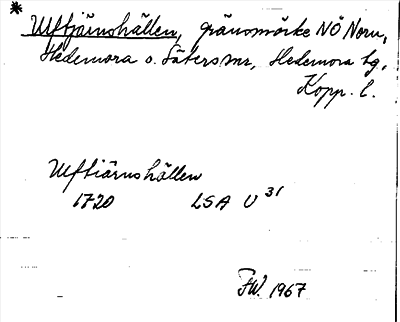 *
Ulftjärnshällen, gränsmärke NÖ Norn,
Hedemora o. Säters snr, Hedemora tg,
Kopp. l.
Ulftiärnshällen
1720 LSA U 31
F.W. 1967